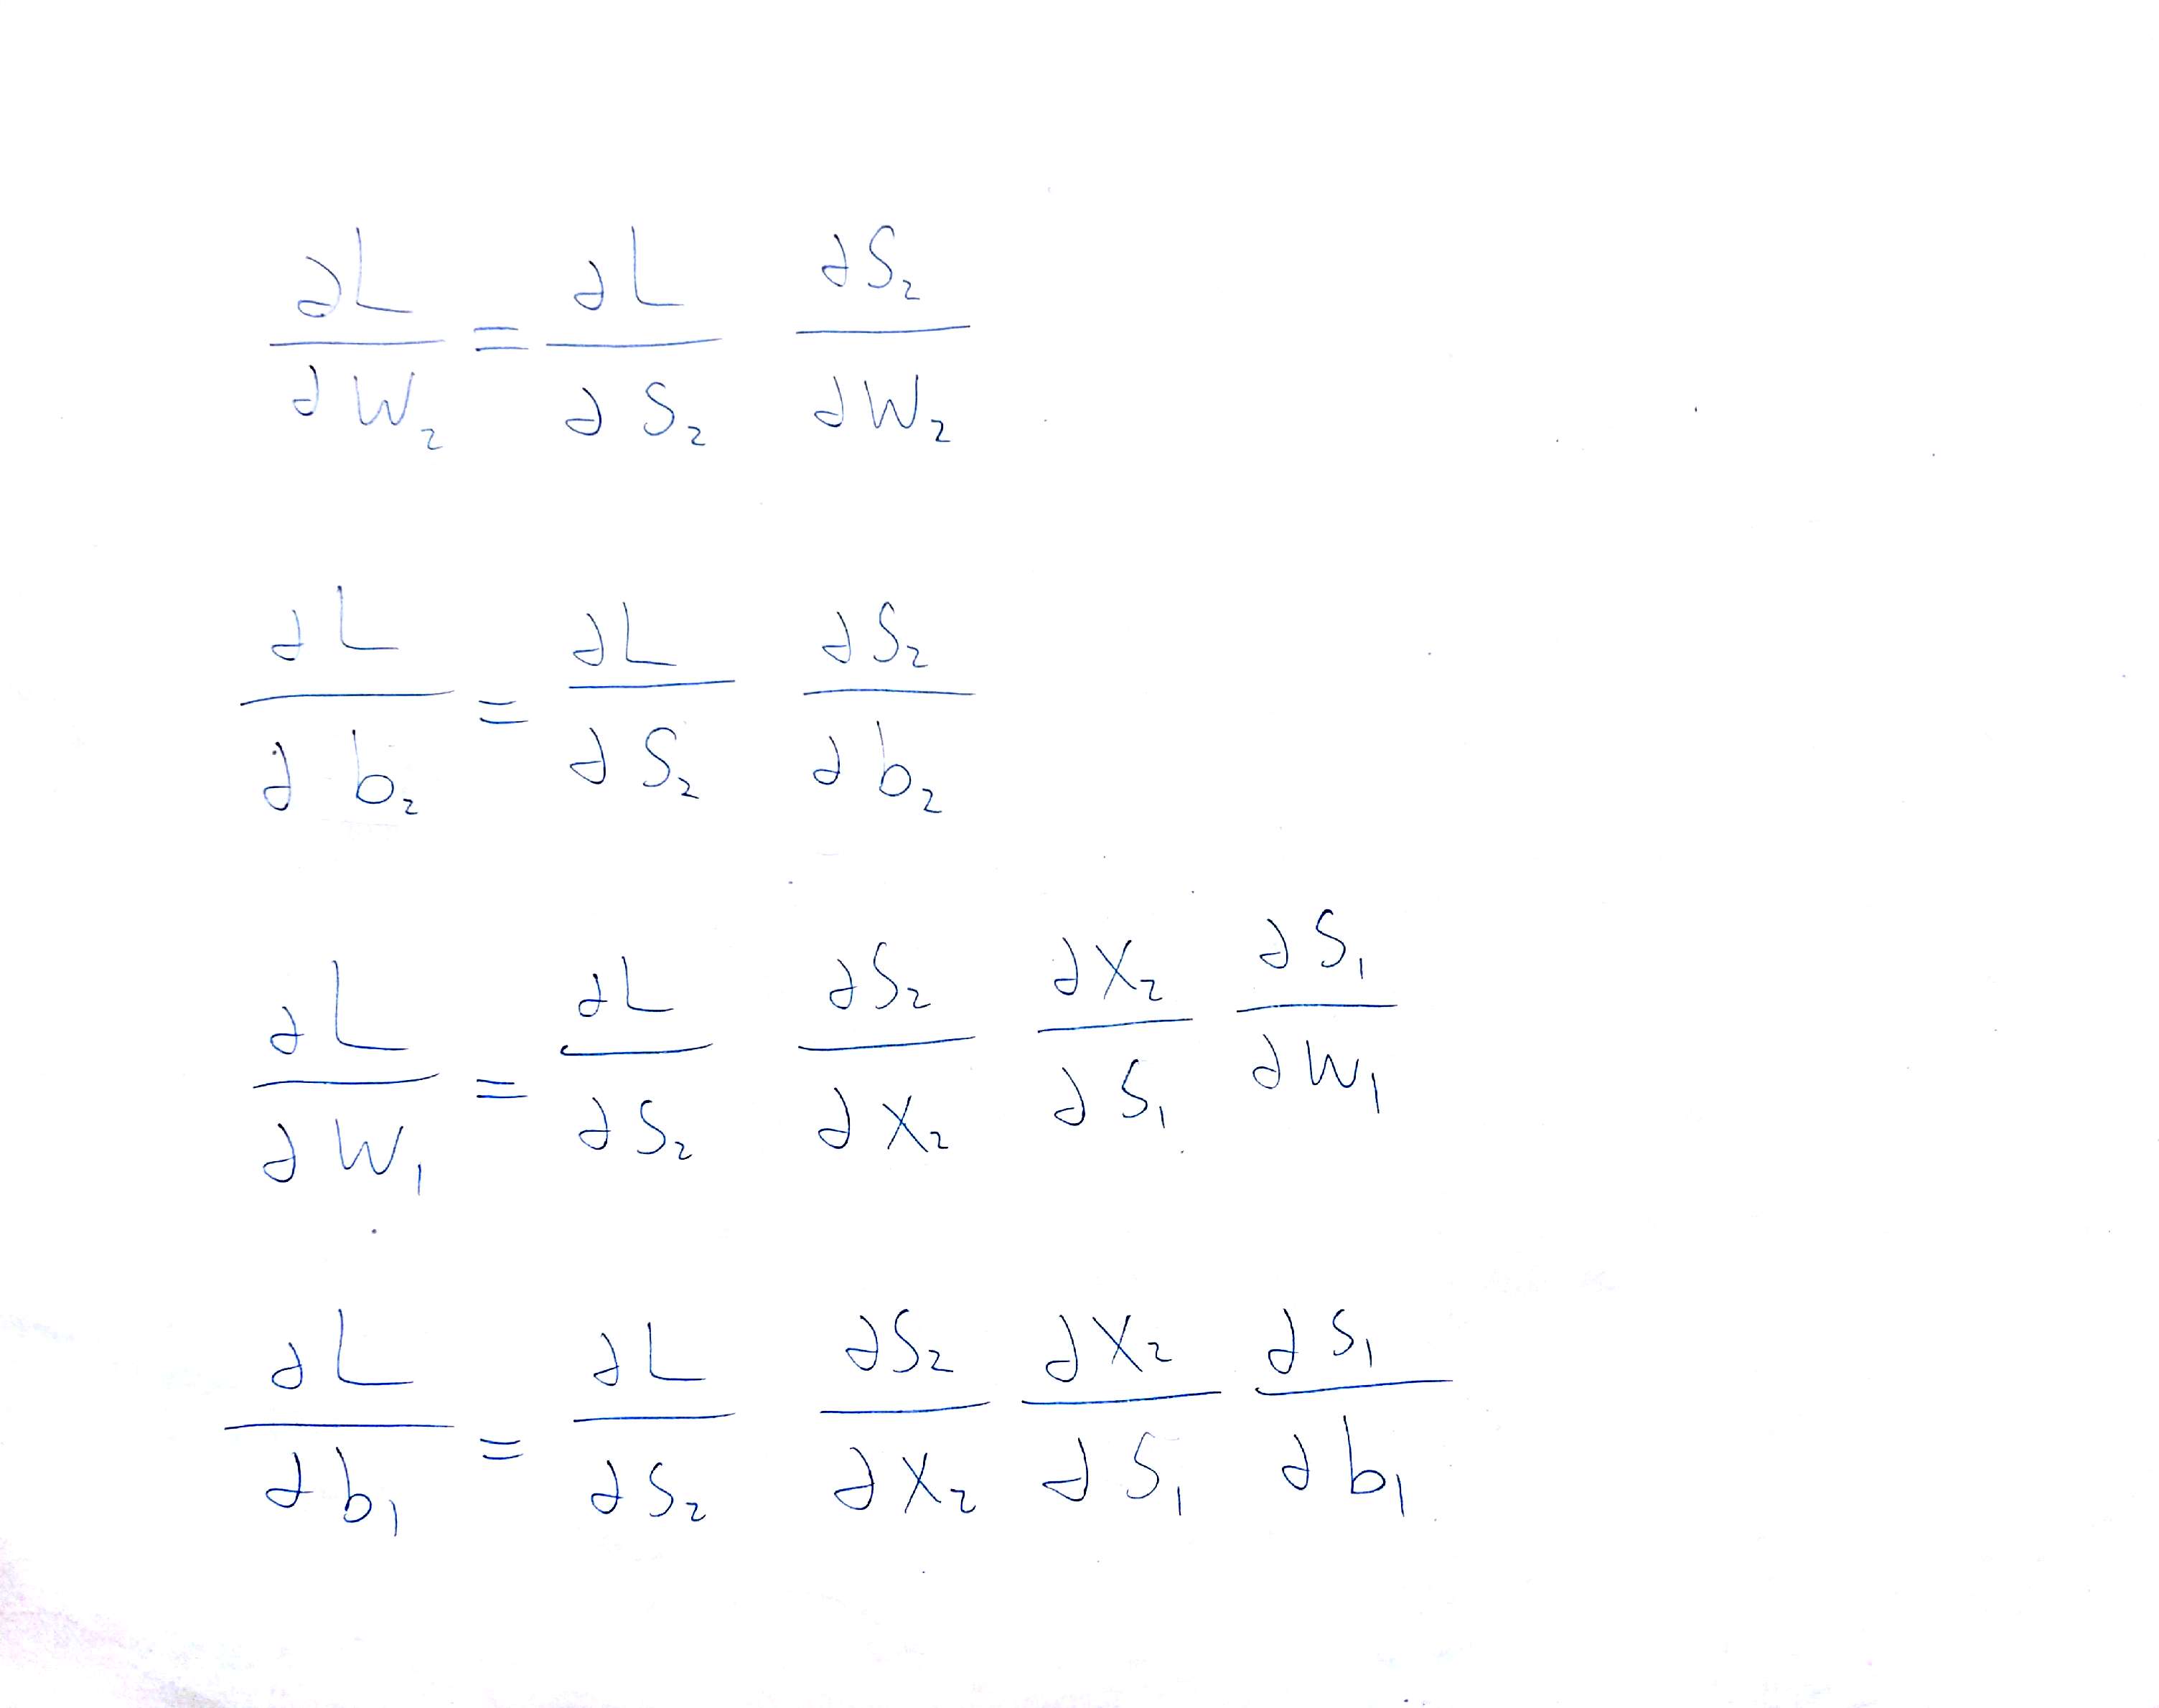 ∂L/∂W₂ = ∂L/∂S₂ ∂S₂/∂W₂
∂L/∂b₂ = ∂L/∂S₂ ∂S₂/∂b₂
∂L/∂W₁ = ∂L/∂S₂ ∂S₂/∂X₂ ∂X₂/∂S₁ ∂S₁/∂W₁
∂L/∂b₁ = ∂L/∂S₂ ∂S₂/∂X₂ ∂X₂/∂S₁ ∂S₁/∂b₁